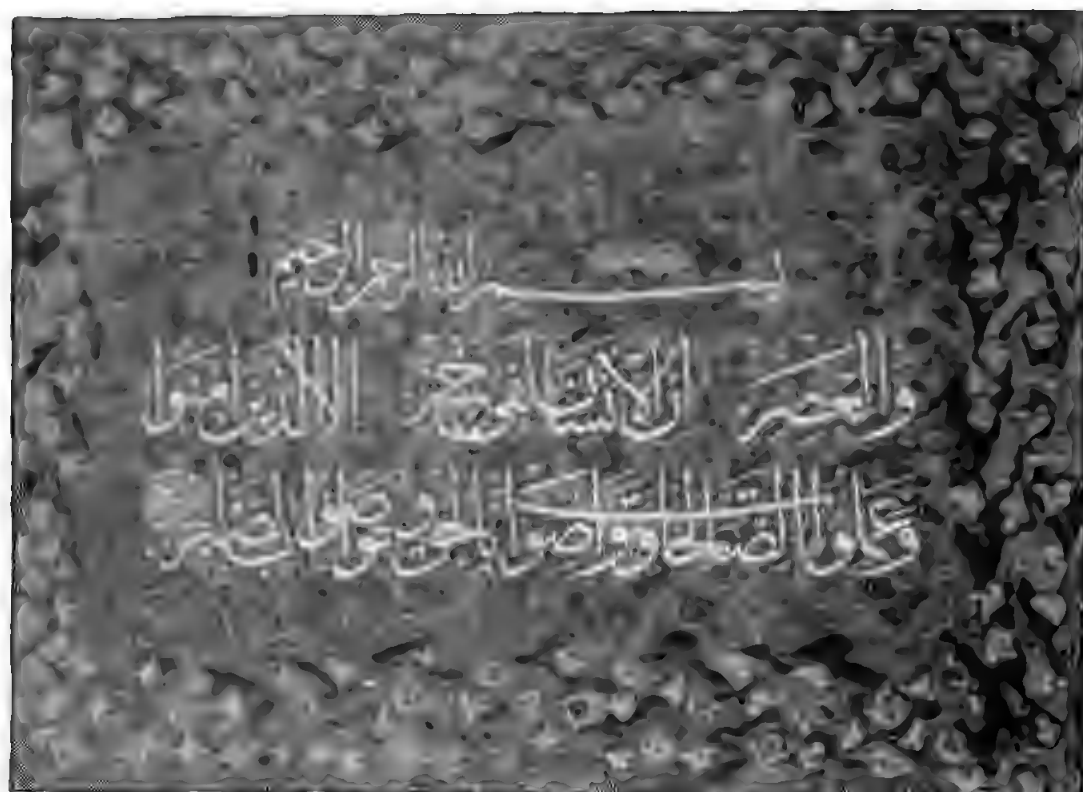 بسم الله الرحمن الرحيم
والعصر ان الانسان لفی خسر الا الذین امنوا
وعملوا الصالحات وتواصوا بالحق وتواصوا بالصبر